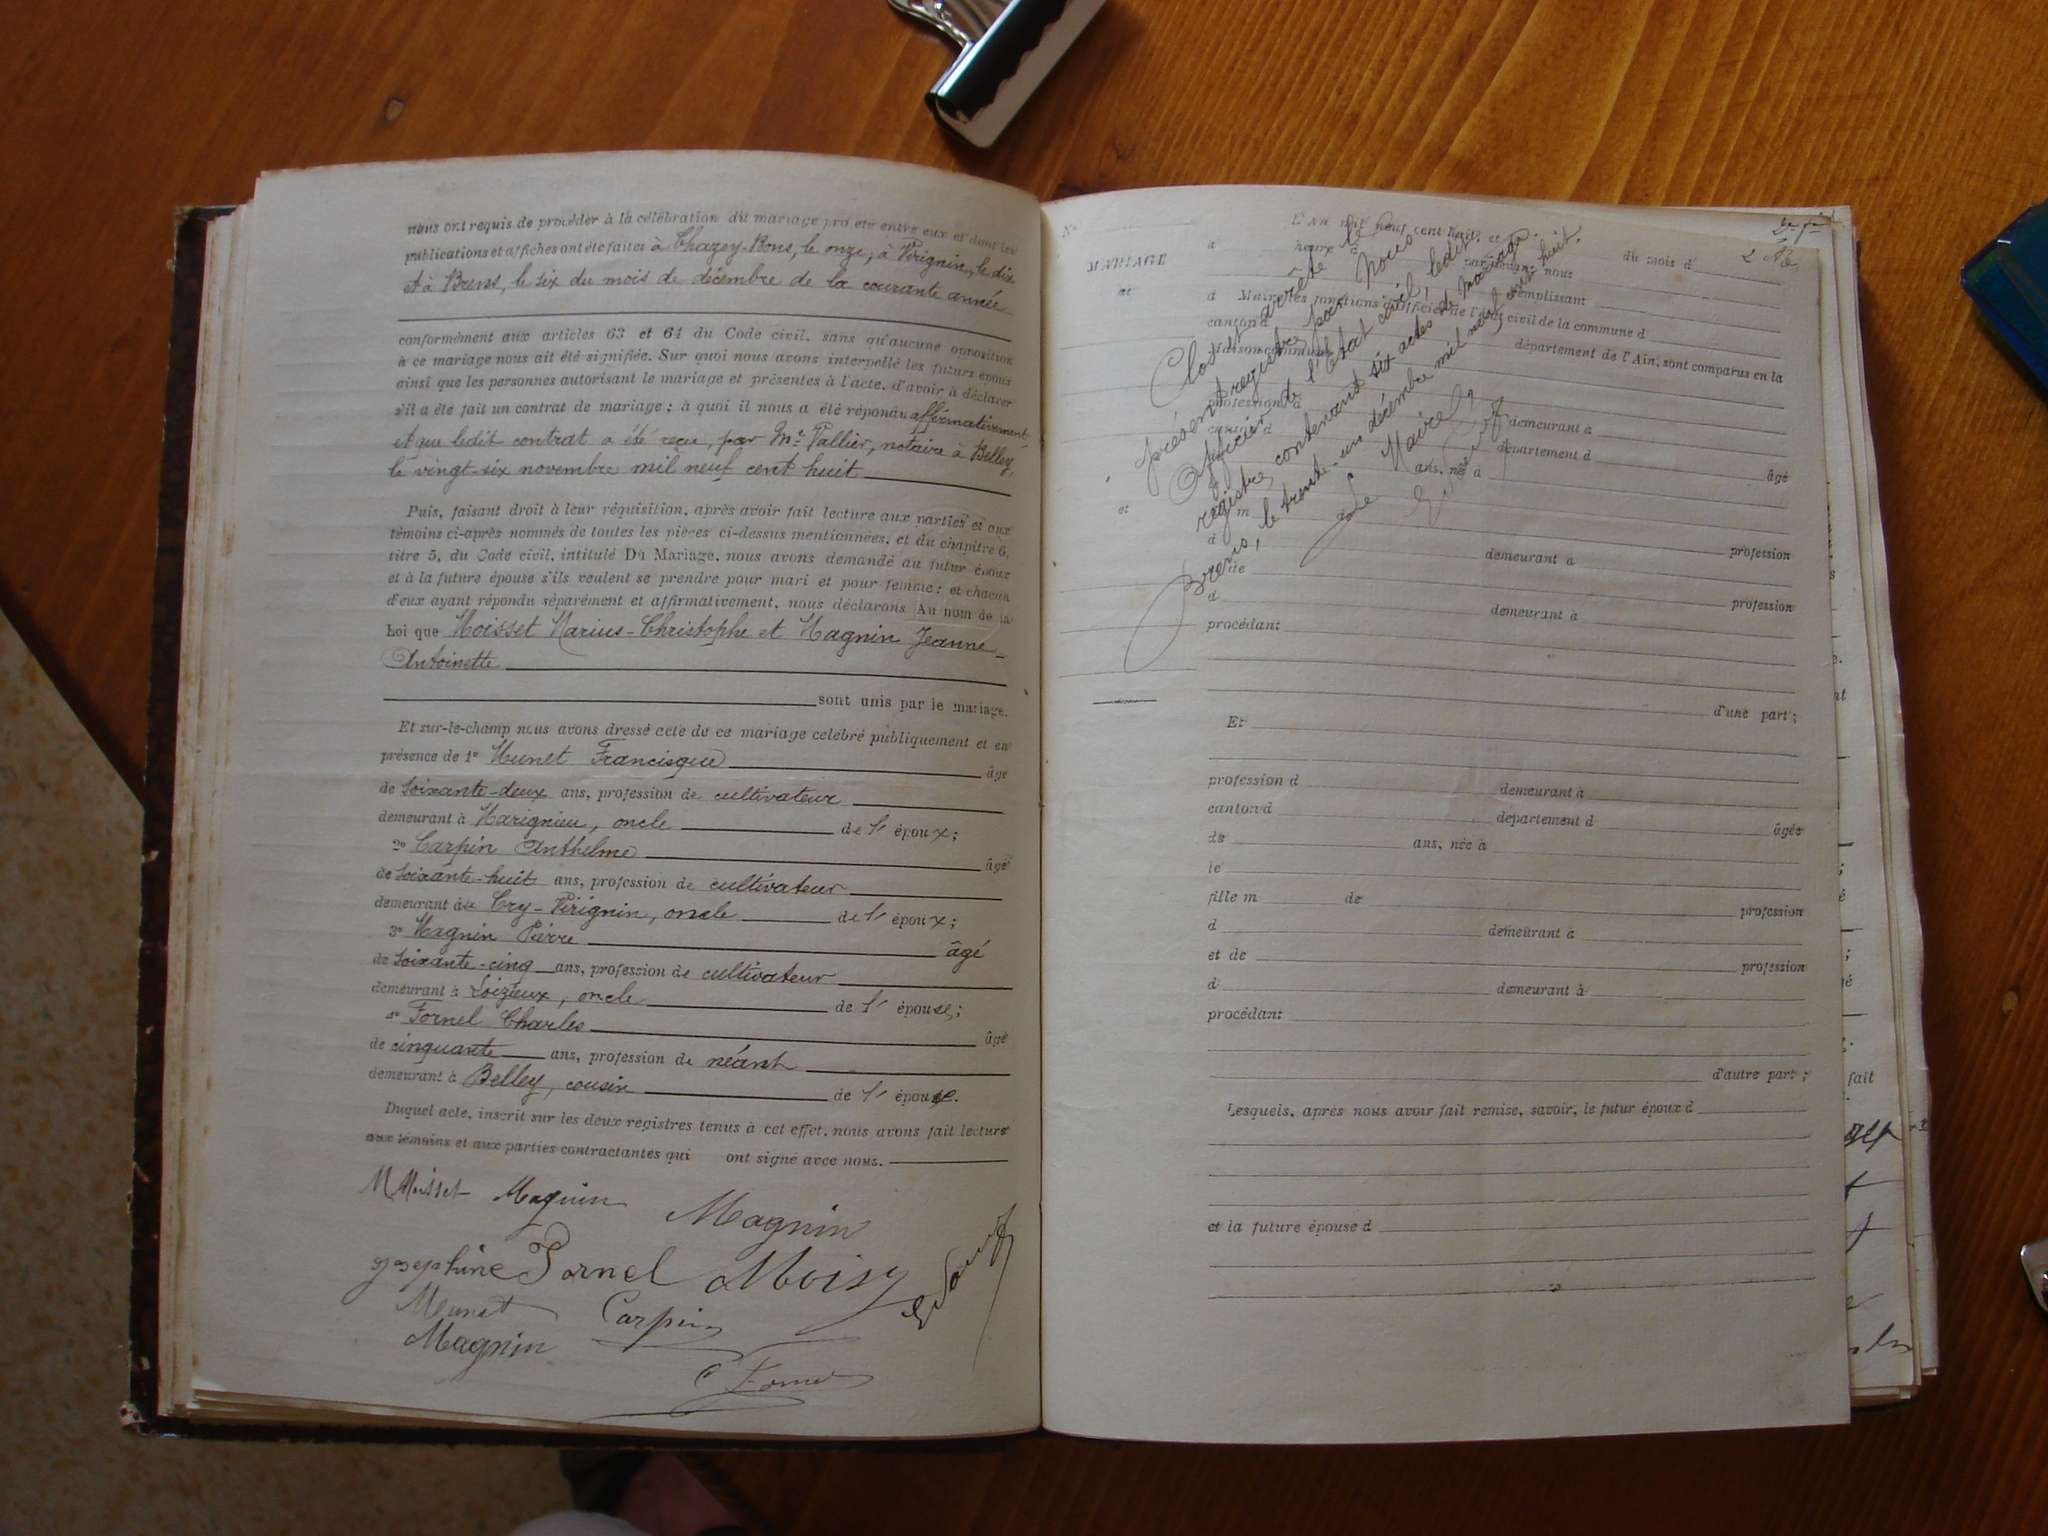 nous ont requis de procéder à la célébration du mariage projeté entre eux et dont les
publications et affiches ont été faites à Chazey-Bons, le onze, à Virignin, le dix
et à Brens, le six du mois de décembre de la courante année
conformément aux articles 63 et 64 du Code civil, sans qu'aucune opposition
à ce mariage nous ait été signifiée. Sur quoi nous avons interpellé les futurs époux
ainsi que les personnes autorisant le mariage et présentes à l'acte, d'avoir à déclarer
s'il a été fait un contrat de mariage ; à quoi il nous a été répondu affirmativement
et que ledit contrat a été reçu, par Me Pallier, notaire à Belley,
le vingt-six novembre mil neuf cent huit
Puis, faisant droit à leur réquisition, après avoir fait lecture aux parties et aux
témoins ci-après nommés de toutes les pièces ci-dessus mentionnées, et du chapitre 6,
titre 5, du Code civil, intitulé Du Mariage, nous avons demandé au futur époux
et à la future épouse s'ils veulent se prendre pour mari et pour femme ; et chacun
d'eux ayant répondu séparément et affirmativement, nous déclarons Au nom de la
Loi que Moisset Marius-Christophe et Magnin Jeanne-
Antoinette
sont unis par le mariage.
Et sur-le-champ nous avons dressé acte de ce mariage célébré publiquement et en
présence de 1° Munet Francisque âgé
de soixante-deux ans, profession de cultivateur
demeurant à Marignieu, oncle de l' époux ;
2° Carpin Anthelme âgé
de soixante-huit ans, profession de cultivateur
demeurant à Cry-Virignin, oncle de l' époux ;
3° Magnin Pierre âgé
de soixante-cinq ans, profession de cultivateur
demeurant à Loizieux, oncle de l' épouse ;
4° Fornel Charles âgé
de cinquante ans, profession de néant
demeurant à Belley, cousin de l' épouse.
Duquel acte, inscrit sur les deux registres tenus à cet effet, nous avons fait lecture
aux témoins et aux parties contractantes qui ont signé avec nous.
M Moisset Magnin Magnin
Joséphine Fornel Moisy
Meunet Carpin
Magnin
C Fornel
N°
MARIAGE
et
L'an mil neuf cent huit, et
du mois d
à heure par devant nous
d Maire
remplissant
les fonctions d'officier de l'état civil de la commune d
canton d
département de l'Ain, sont comparus en la
maison commune
profession d
demeurant à
canton d
département d
âgé
ans, né à
m
d
demeurant à profession
de
d demeurant à profession
procédant
d'une part ;
Et
profession d demeurant à
canton d département d âgée
de ans, née à
le
fille m de profession
d demeurant à
et de profession
d demeurant à
procédant
d'autre part ;
Lesquels, après nous avoir fait remise, savoir, le futur époux d
et la future épouse d
Clos et arrêté le
présent registre, par Nous
Officier de l'Etat civil, ledit
registre, contenant six actes de mariage.
Brens, le trente-un décembre mil neuf cent huit.
Le Maire,
fait